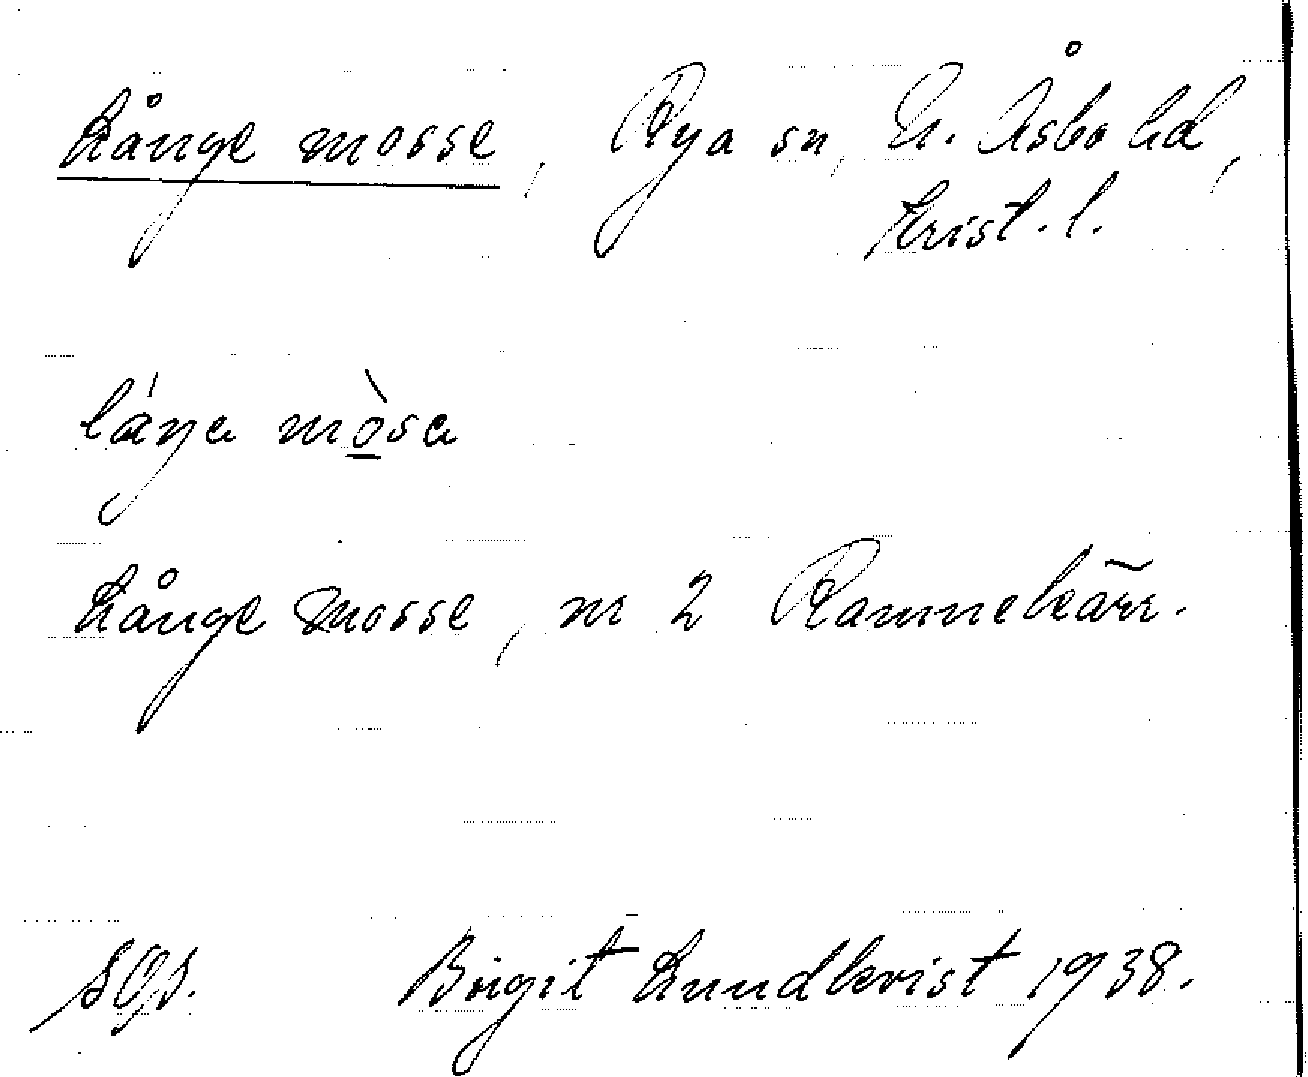 Långe mosse, Rya sn, N. Åsbo hd,
Krist. l.
låŋa mòsa
Långe Mosse, nr 2 Rammekärr.
SOS. Birgit Lundkvist 1938.